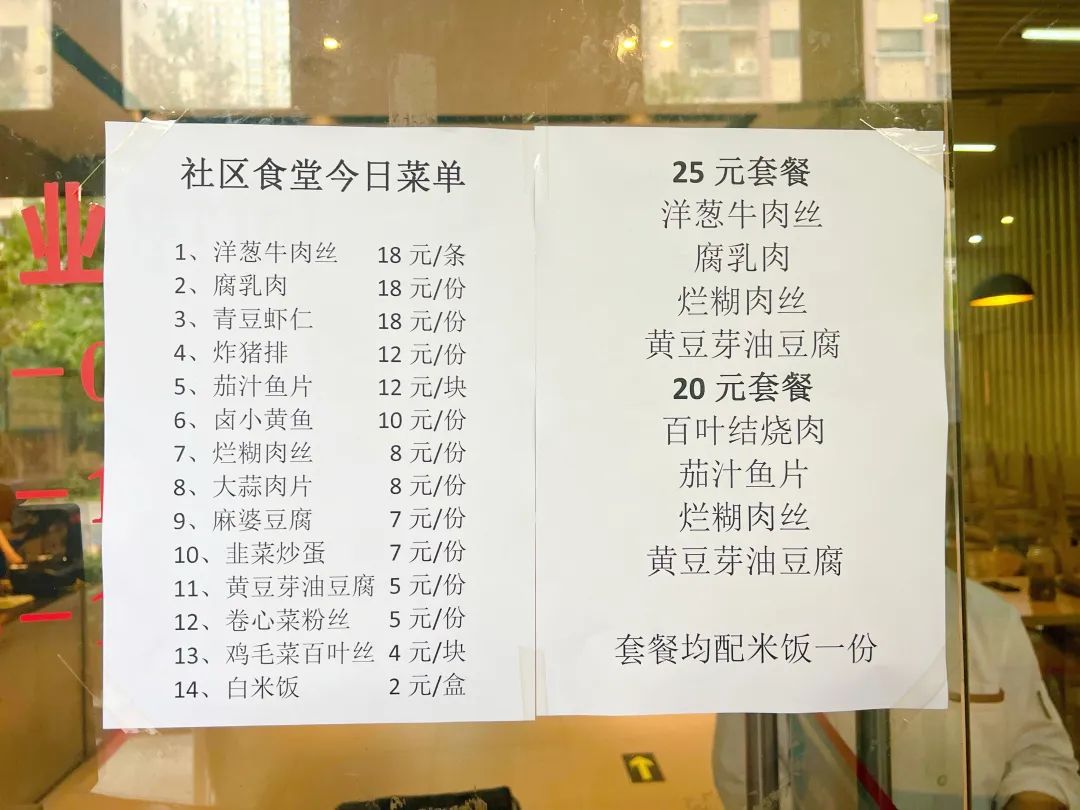 社区食堂今日菜单
1、洋葱牛肉丝 18 元/条
2、腐乳肉 18 元/份
3、青豆虾仁 18 元/份
4、炸猪排 12 元/份
5、茄汁鱼片 12 元/块
6、卤小黄鱼 10 元/份
7、烂糊肉丝 8 元/份
8、大蒜肉片 8 元/份
9、麻婆豆腐 7 元/份
10、韭菜炒蛋 7 元/份
11、黄豆芽油豆腐 5 元/份
12、卷心菜粉丝 5 元/份
13、鸡毛菜百叶丝 4 元/块
14、白米饭 2 元/盒
25 元套餐
洋葱牛肉丝
腐乳肉
烂糊肉丝
黄豆芽油豆腐
20 元套餐
百叶结烧肉
茄汁鱼片
烂糊肉丝
黄豆芽油豆腐
套餐均配米饭一份
业